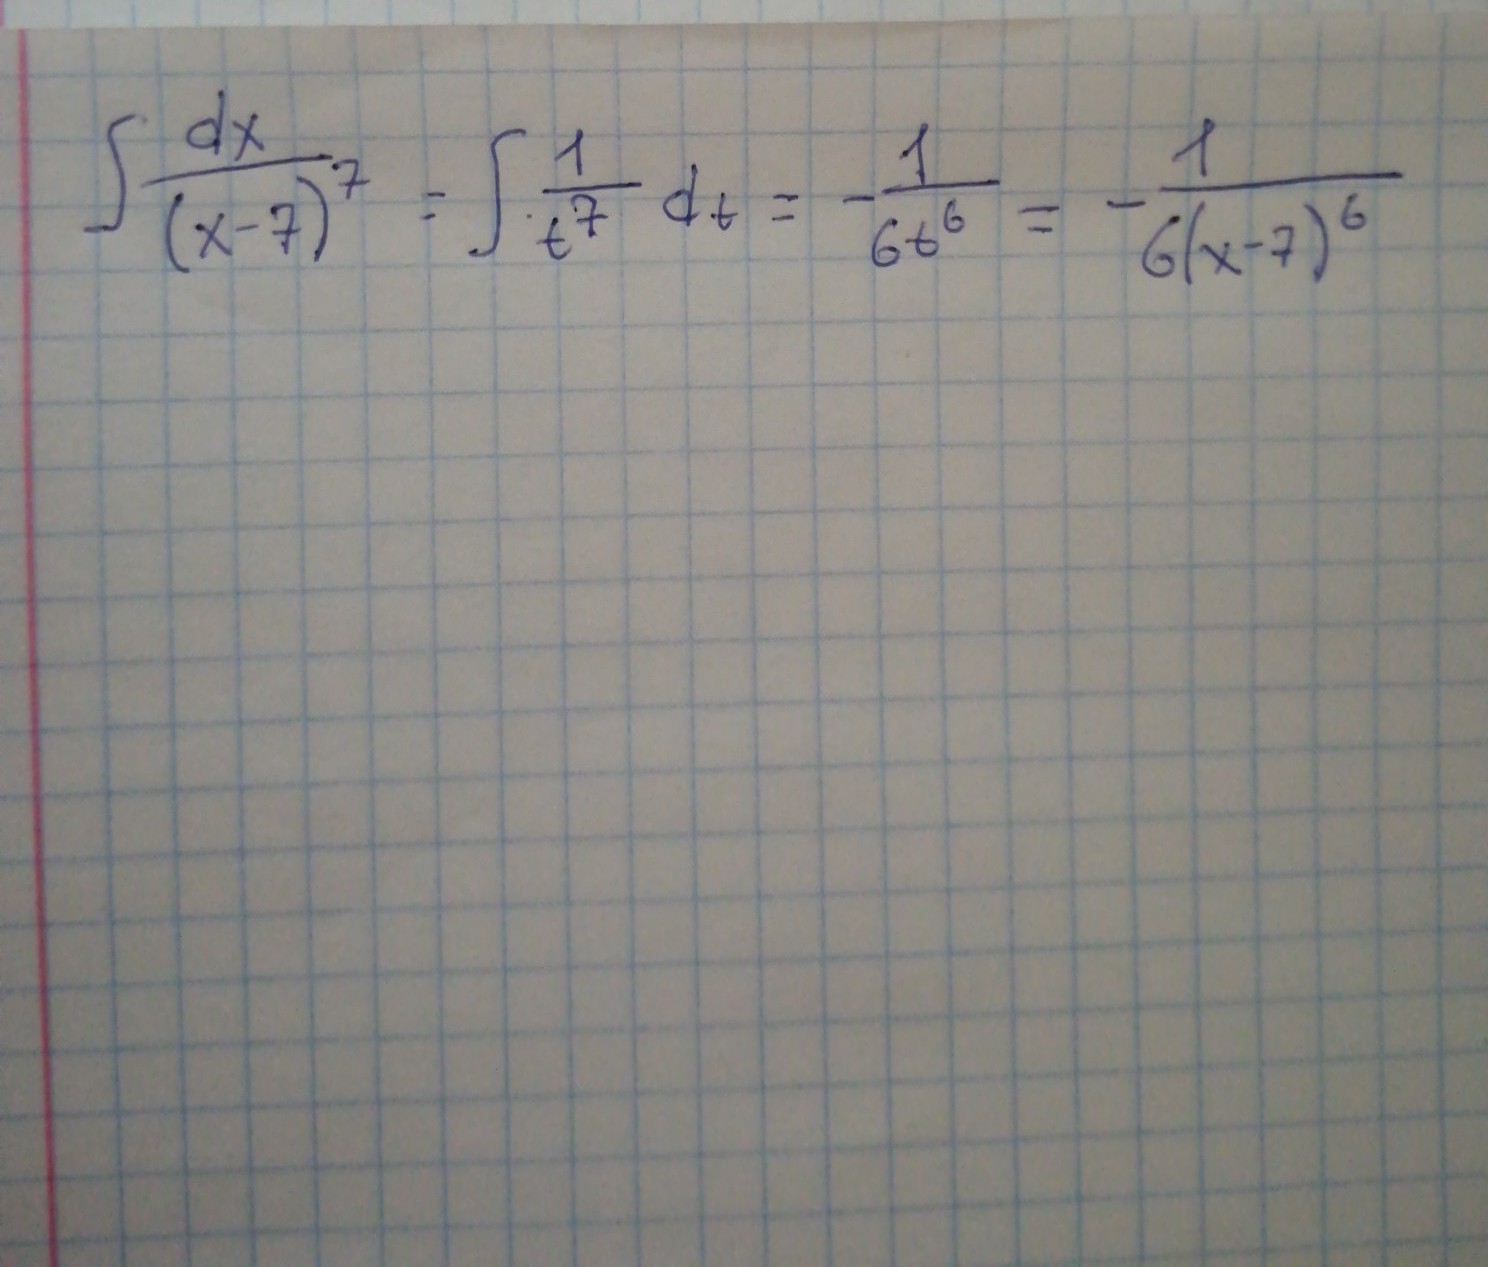 ∫ dx/(x-7)^7 = ∫ 1/t^7 dt = -1/6t^6 = -1/6(x-7)^6